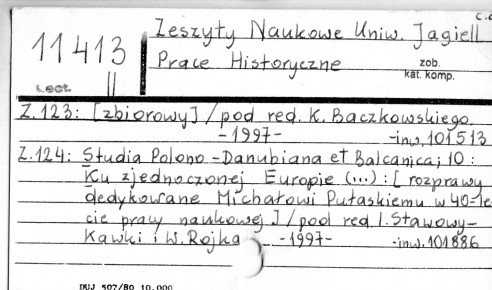 C.d.
11413
II
Lect.
Zeszyty Naukowe Uniw. Jagiell
Prace Historyczne
zob.
kat. komp.
Z.123: [zbiorowy] / pod red. K. Baczkowskiego.
-1997- -inw. 101513
Z.124: Studia Polono-Danubiana et Balcanica; 10:
Ku zjednoczonej Europie (...): [rozprawy
dedykowane Michałowi Pułaskiemu w 40-le-
cie pracy naukowej] / pod red. I. Stawowy-
Kawki i W. Rojka -1997- -inw. 101886
DUJ 507/80 10.000